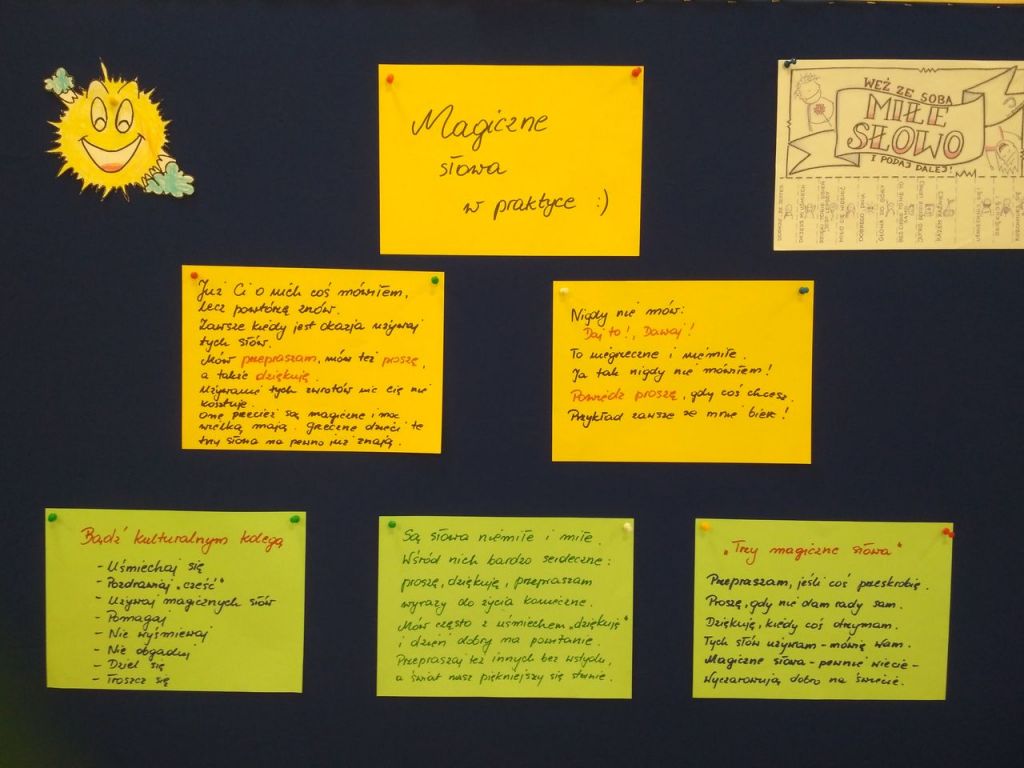 Magiczne
słowa
w praktyce :)
WEŹ ZE SOBĄ
MIŁE
SŁOWO
I PODAJ DALEJ!
Już Ci o nich coś mówiłem,
Lecz powtórzę znów.
Zawsze kiedy jest okazja używaj
tych słów.
Mów przepraszam, mów też proszę,
a także dziękuję.
Używanie tych zwrotów nic cię nie
kosztuje.
One przecież są magiczne i moc
wielką mają. Grzeczne dzieci te
trzy słowa na pewno już znają.
Nigdy nie mów:
Daj to!, Dawaj!
To niegrzeczne i niemiłe.
Ja tak nigdy nie mówiłem!
Powiedz proszę, gdy coś chcesz.
Przykład zawsze ze mnie bierz!
Bądź kulturalnym kolegą
- Uśmiechaj się
- Pozdrawiaj "cześć"
- Używaj magicznych słów
- Pomagaj
- Nie wyśmiewaj
- Nie obgaduj
- Dziel się
- Troszcz się
Są słowa niemiłe i miłe.
Wśród nich bardzo serdeczne:
proszę, dziękuję, przepraszam
wyrazy do życia konieczne.
Mów często z uśmiechem „dziękuję"
i dzień dobry na powitanie.
Przepraszaj też innych bez wstydu,
a świat nasz piękniejszy się stanie.
„Trzy magiczne słowa"
Przepraszam, jeśli coś przeskrobię.
Proszę, gdy nie dam rady sam.
Dziękuję, kiedy coś otrzymam.
Tych słów używam - mówię Wam.
Magiczne słowa - pewnie wiecie -
Wyczarowują dobro na świecie.